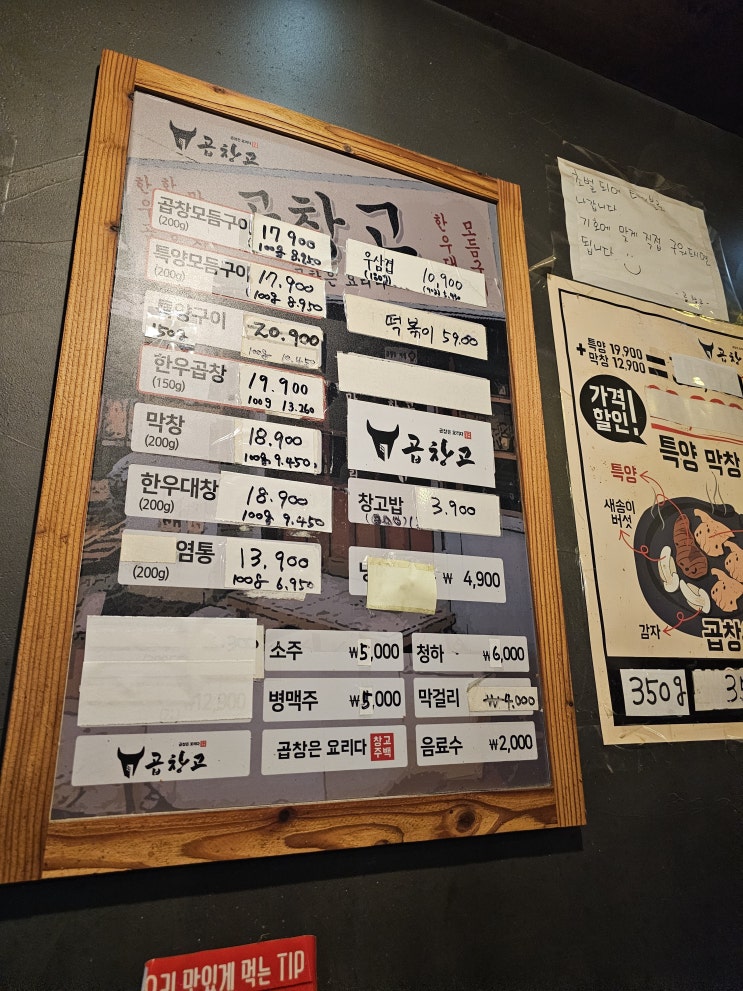 곱창고
곱창고
곱창모듬구이
(200g)
17,900
100g 8.950
특양모듬구이
(200g)
17,900
(100g 8.950
특양구이
150g
20.900
100g 10.450
한우곱창
(150g)
19.900
100g 13.260
막창
(200g)
18.900
100g 9.450
한우대창
(200g)
18.900
100g 9.450
염통
(200g)
13,900
100g 6.950
우삼겹
10,900
떡볶이 5900
곱창은 요리다
곱창고
창고밥
3.900
₩ 4,900
소주 ₩5,000
청하 ₩6,000
병맥주 ₩5,000
막걸리 ₩4,000
곱창고
곱창은 요리다 창고주백
음료수 ₩2,000
초벌되어
나갑니다
기호에 맞게 직접
됩니다
+
특양 19,900
막창 12,900
=
가격
할인!
특양 막창
특양
새송이
버섯
감자
곱창
350g
맛있게 먹는 TIP